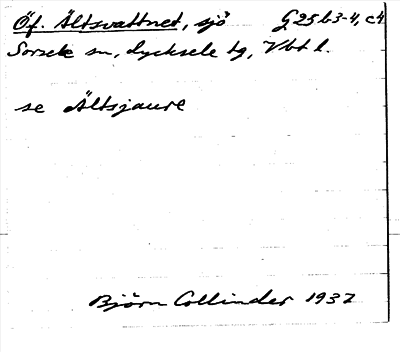 Öf. Ältsvattnet, sjö G25b3-4, c4
Sorsele sn, Lycksele tg, Vbt l.
se Ältsjaure
Björn Collinder 1937